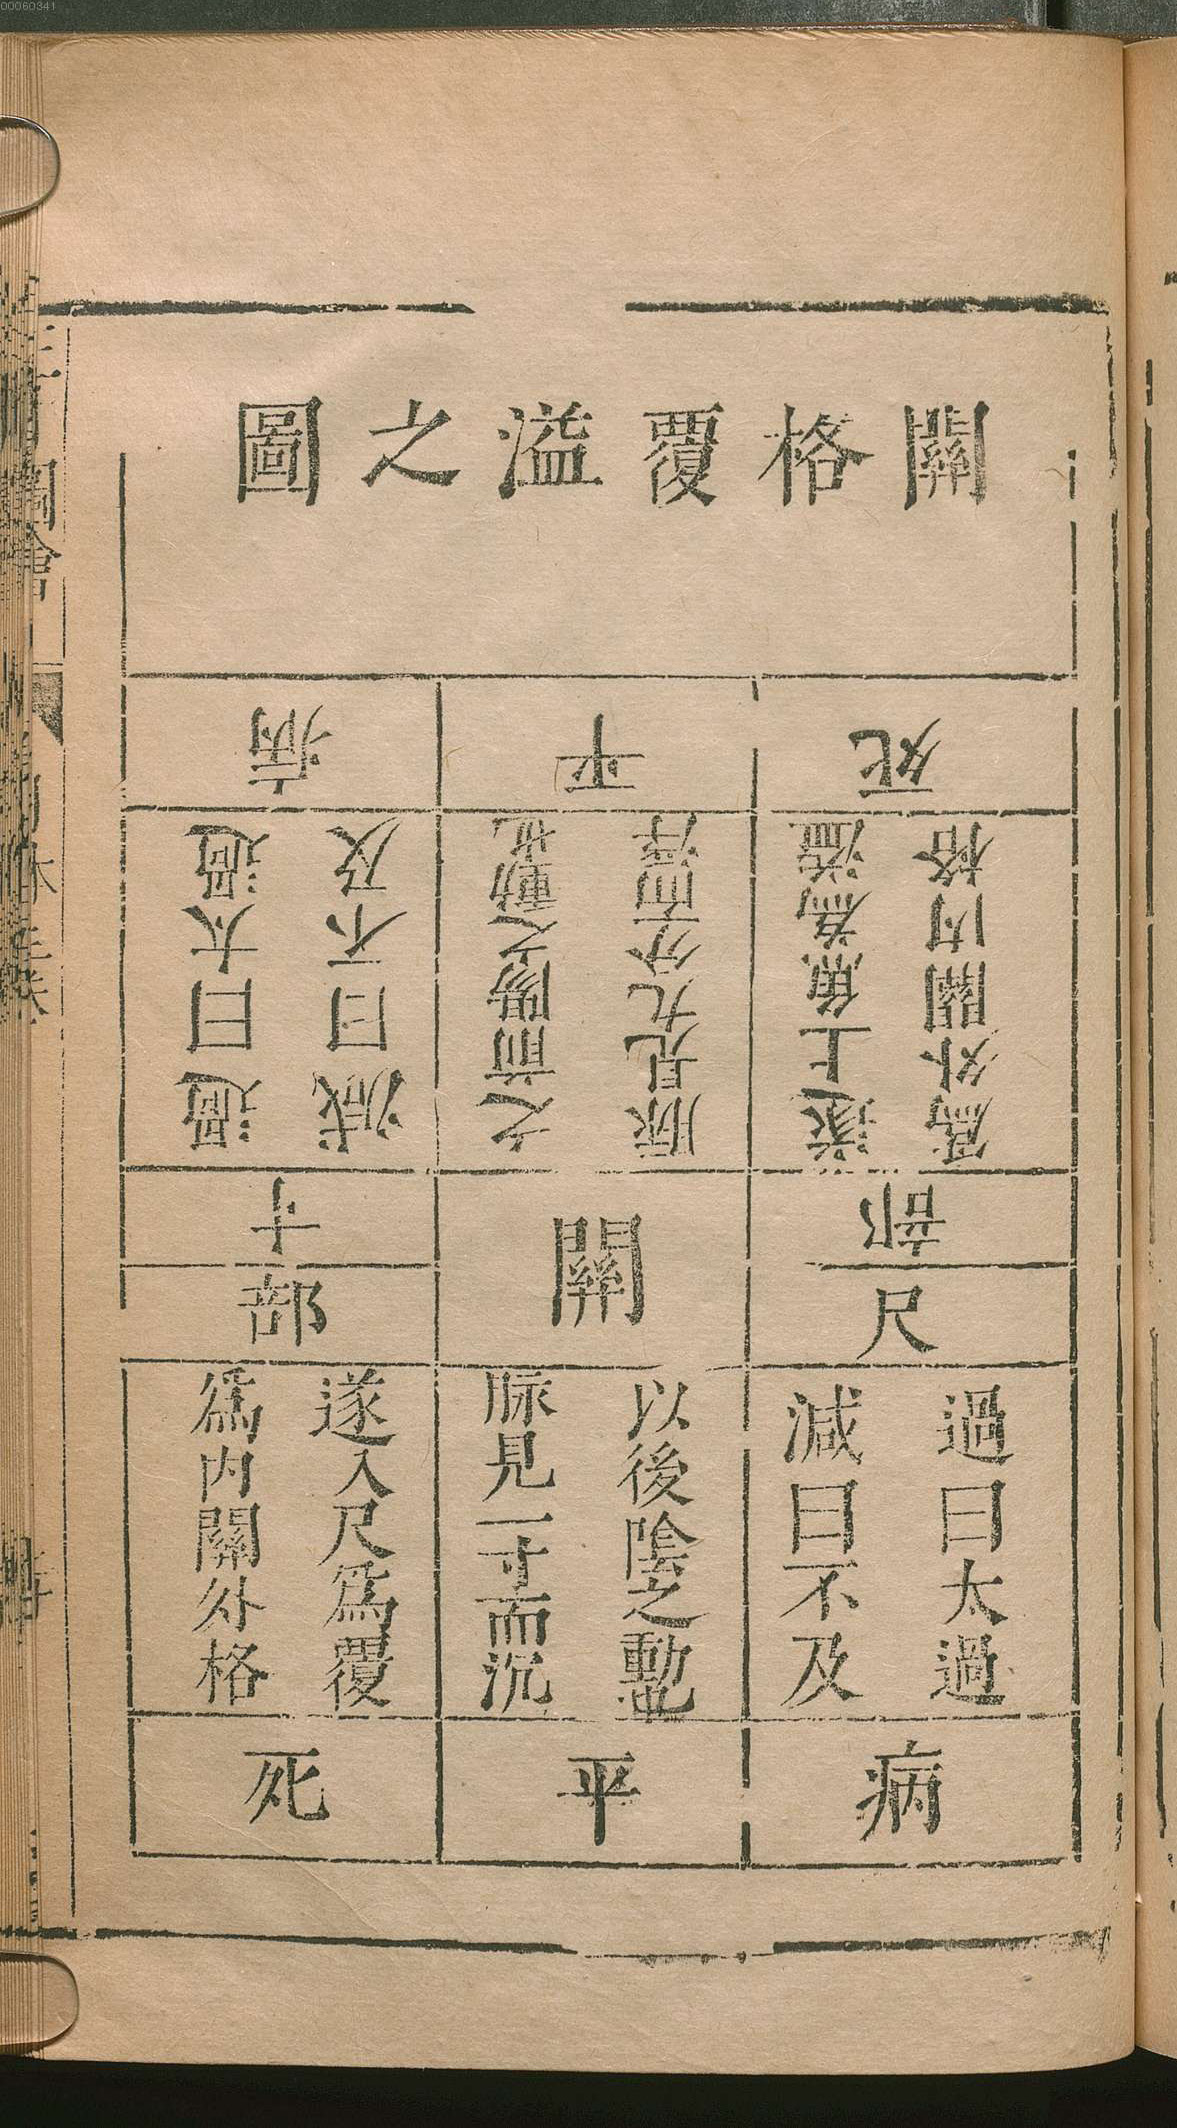 關格覆溢之圖
病
平
死
過曰太過
減曰不及
之前陽之動也
脉見九分而浮
遂上魚爲溢
爲外關内格
寸
關
部
尺
部
過曰太過
減曰不及
以後陰之動也
脉見一寸而沉
遂入尺爲覆
爲内關外格
病
平
死
圖會
00060341